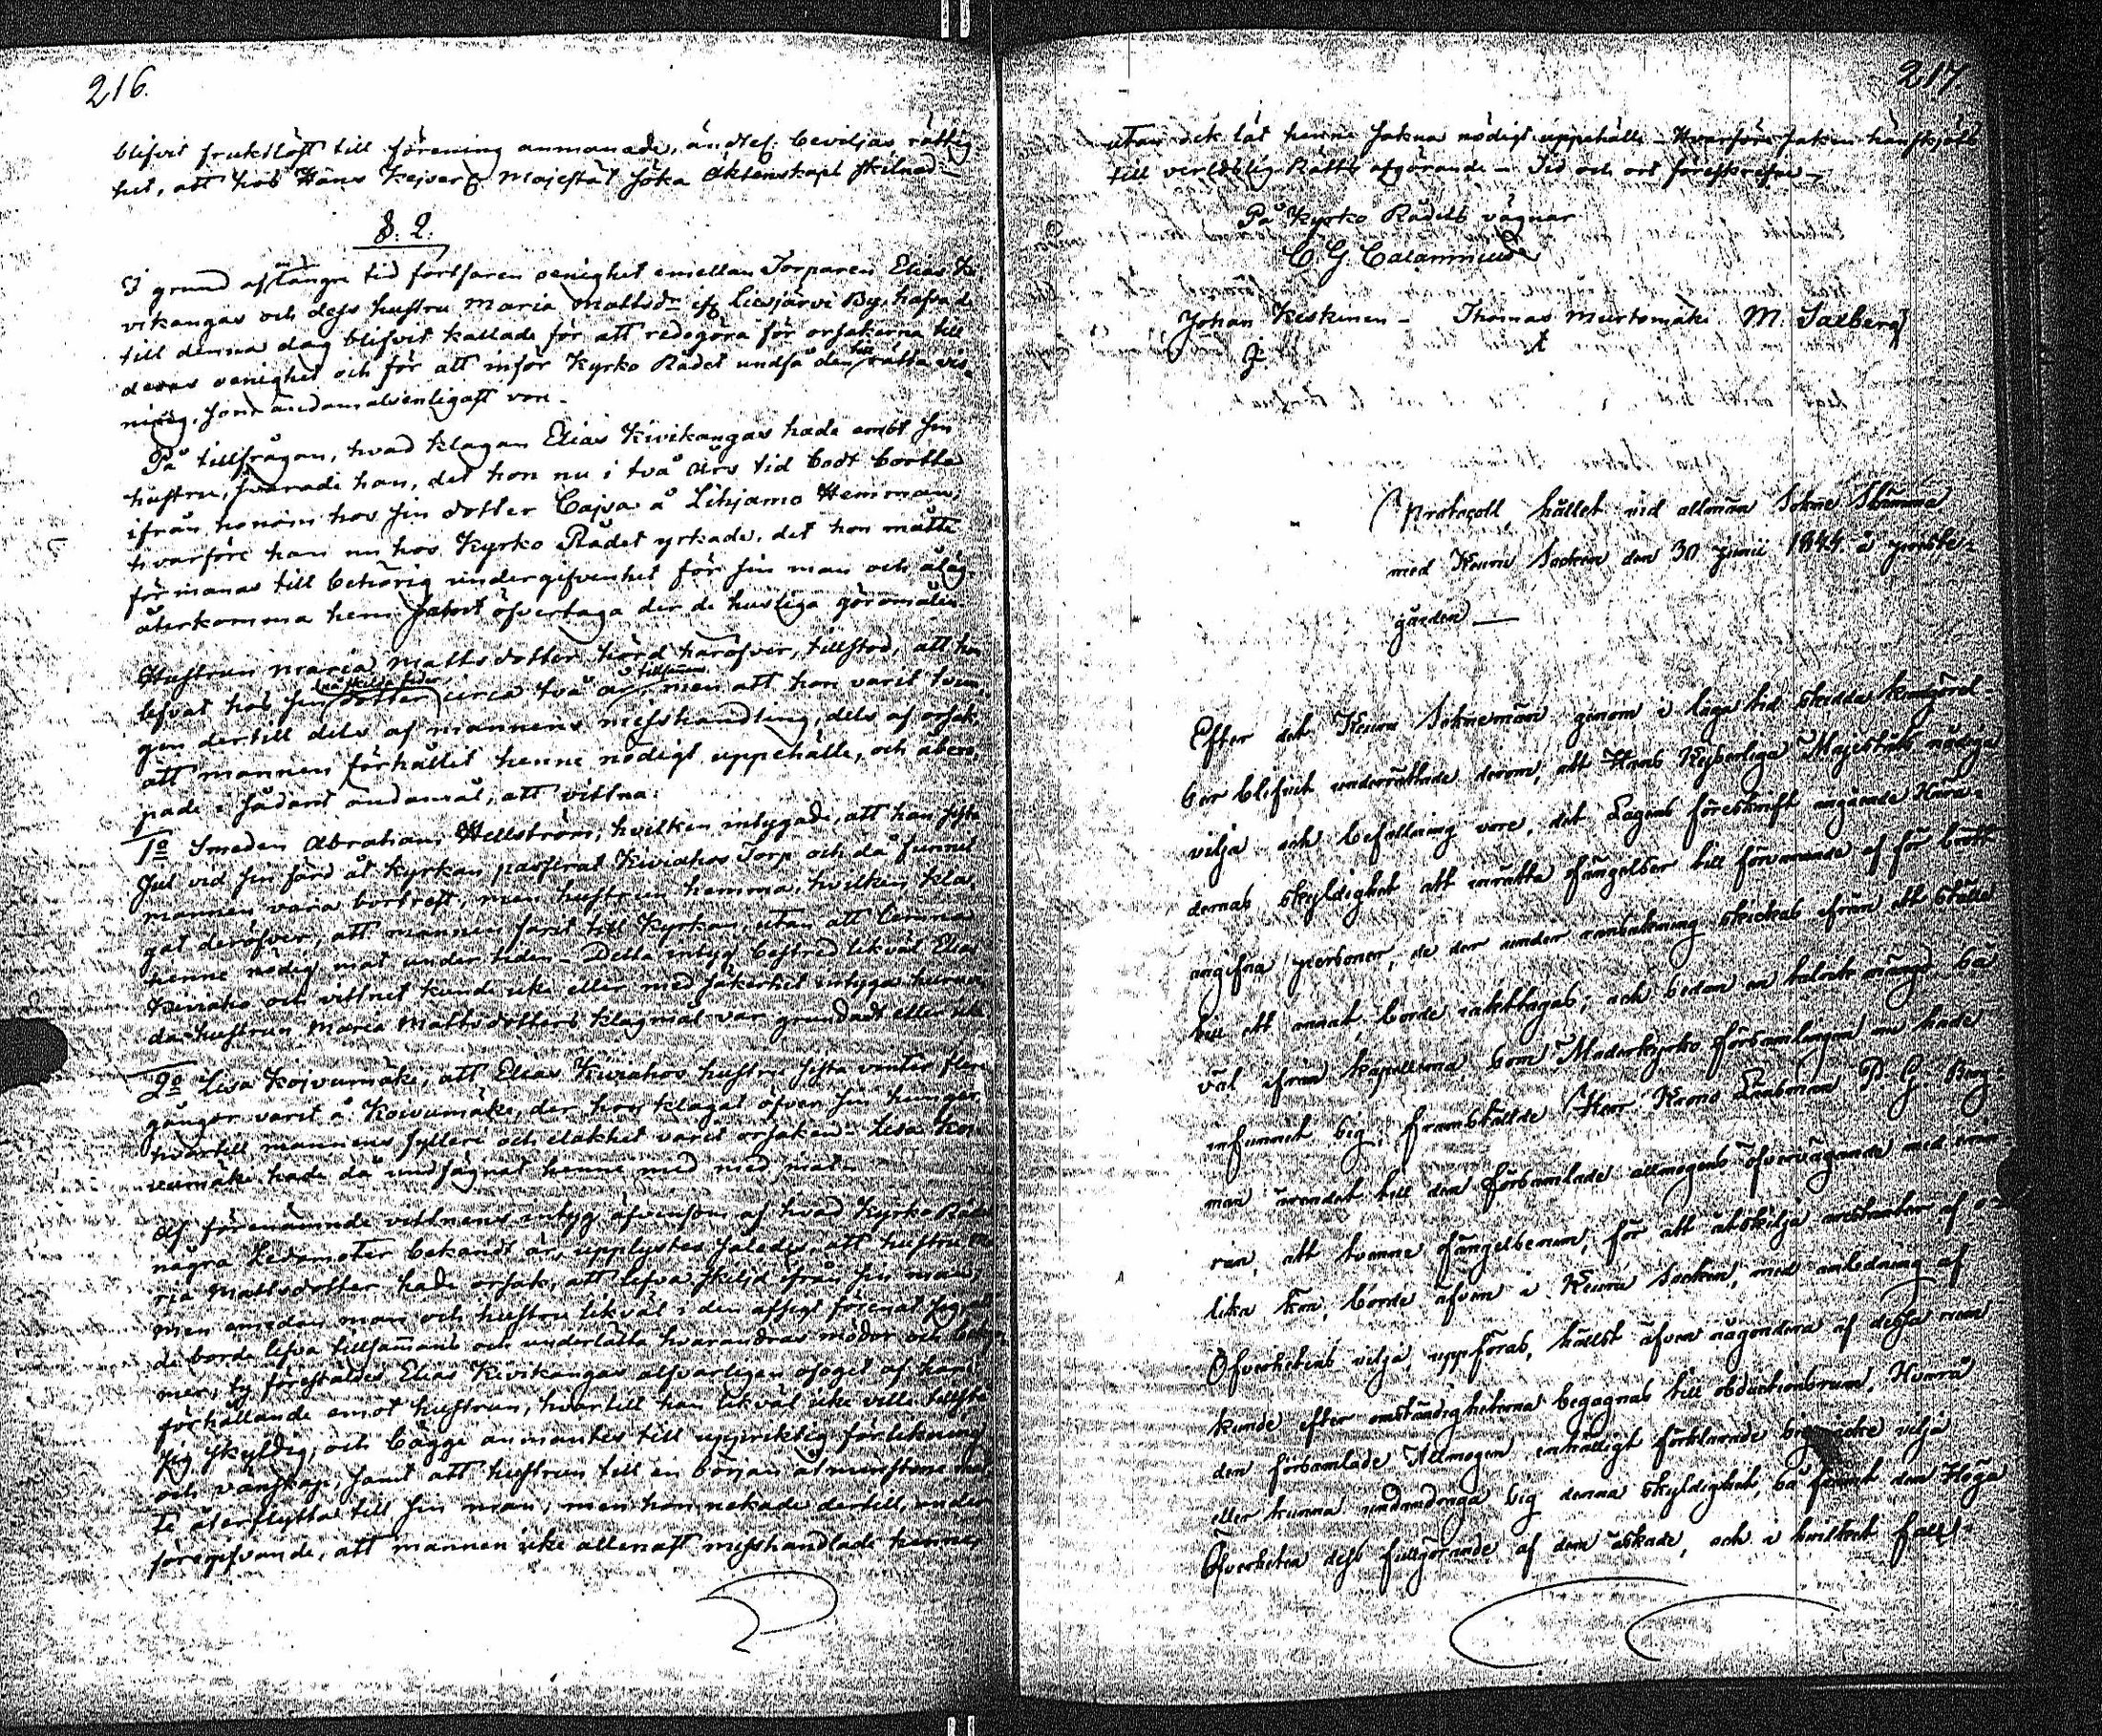 216.
blifvit fruktlöst till förening anmanade, ändtel. beviljas rättig
het, att hos Hans Kejserl. Majestät söka Äktenskaps skilnad —
§. 2.
I grund af längre tid fortfaren oenighet emellan Torparen Elias Ki
vikangas och dess hustru Maria Mattsdr ifr. Liesjärvi By, hafva de
till denna dag blifvit kallade för att redogöra för orsakerna till
deras oenighet och för att inför Kyrko Rådet undfå den rätta vis
ning, som ändamålsenligast vore.
På tillfrågan, hvad klagan Elias Kivikangas hade emot sin
hustru, svarade han, det hon nu i två års tid bodt bortta
ifrån honom hos sin dotter Cajsa å Lihjamo Hemman,
hvarföre han nu hos Kyrko Rådet yrkade, det hon måtte
förmanas till behörig undergifvenhet för sin man och åläg.
återkomma hem samt öfvertaga der de husliga göromålen.
Hustrun Maria Mattsdotter hörd häröfver, tillstod, att hon
lefvat hos sin dotter circa två år tillsamm. men att hon varit tvun
gen dertill dels af mannens misshandling, dels af orsak,
att mannen förhållit henne nödigt uppehälle, och åbero,
pade i sådant ändamål, att vittna:
1o Smeden Abraham Hellström, hvilken intygade, att han sista
Jul vid sin färd åt kyrkan passerat Kiviahos Torp och då funnit
mannen vara bortrest, men hustrun hemma, hvilken kla,
gat deröfver, att mannen farit till Kyrkan, utan att lemna
henne nödig mat under tiden — Detta intyg bestred likväl Elias
Kiviaho och vittnet kunde icke eller med säkerhet intyga huruvi
da hustrun Maria Mattsdotters klagmål var grundadt eller icke
2o Lisa Koivumäki, att Elias Kiviahos hustru sista vinter flere
gånger varit å Koivumäki, der hon klagat öfver sin hunger,
hvartill mannens fylleri och elakhet varit orsaken. Lisa Koi
vumäki hade då undfägnat henne med med mat.
Af förenämnde vittnens intyg äfvensom af hvad Kyrko Råds
några Ledamoter bekandt är, upplystes således, att hustru Ma
ria Mattsdotter hade orsak, att lefva skiljd ifrån sin man,
men emedan man och hustru likväl i den afsigt förenat sig, att
de borde lefva tillsamans och underlätta hvarandras mödor och bekym
mer, ty föreställdes Elias Kivikangas alfvarligen ofoget af hans
förhållande emot hustrun, hvartill han likväl icke ville tillstå
sig skyldig, och bägge anmantes till uppriktig förlikning
och vänskap, samt att hustrun till en början åtminstone måt
te återflytta till sin man, men hon nekade dertill, under
föregifvande, att mannen icke allenast misshandlade henne,
217
utan ock lät henne sakna nödigt uppehälle — Hvarföre saken hänskjöts
till verldslig Rätts afgörande — Tid och ort föreskrefne —
På Kyrko Rådets vägnar
C. G. Calamnius
Johan Keskinen — Thomas Murtomäki M. Salberg
Protocoll, hållet vid allmän Sokne Stämma
med Keuru Socken den 30 Junii 1844 å preste-
gården —
Efter det Keuru Soknemän genom i laga tid skedda kungörel-
ser blifvit underrättade derom, att Hans Kejserliga Majestäts nådiga
vilja och befallning vore, det Lagens föreskrift angående Härа-
dernas skyldighet att inrätta fängelser till förvarande af för brott
angifna personer, de der under ransakning skickas ifrån ett ställe
till ett annat, borde iakttagas; och sedan en talrik mängd, så
väl ifrån kapellerna, som Moderkyrko församlingen nu hade
infunnit sig, framställde Herr Krono Länsman P. G. Berg-
man ärendet till den församlade allmogens öfvervägande med erin-
ran, att tvenne fängelserum, för att åtskilja arrestanter af o-
lika kön, borde äfven i Keuru Socken, med anledning af
Öfverhetens vilja, uppföras, hällst äfven någondera af dessa rum
kunde efter omständigheterna begagnas till obductionsrum. Hvarå
den församlade Allmogen enhälligt förklarade sig icke vilja
eller kunna undandraga sig denna skyldighet, så framt den Höga
Öfverheten dess fullgörande af dem äskade, och i hvilket fall